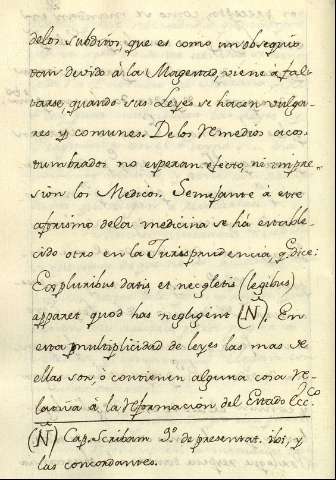 delos subditos, que es como un obsequio
tan devido à la Magestad, viene à fal-
tarse, quàndo sus Leyes se hacen vulga-
res y comunes. De los remedios acos-
tumbrados no esperan efecto, ni impre-
sión los Medicos. Semejante à este
aforismo dela medicina se hà estable-
cido otro en la Jurisprudencia, q.e dice:
Ex pluribus datis, et necgletis (legibus)
apparet quod has negligent (Ñ). En
esta multiplicidad de leyes las mas de
ellas son, ò contienen alguna cosa re-
lativa à la reformación del Estado Ecc.co
(Ñ) Cap. Scribam. 2.º de presentat. ibi, y
las concordantes.